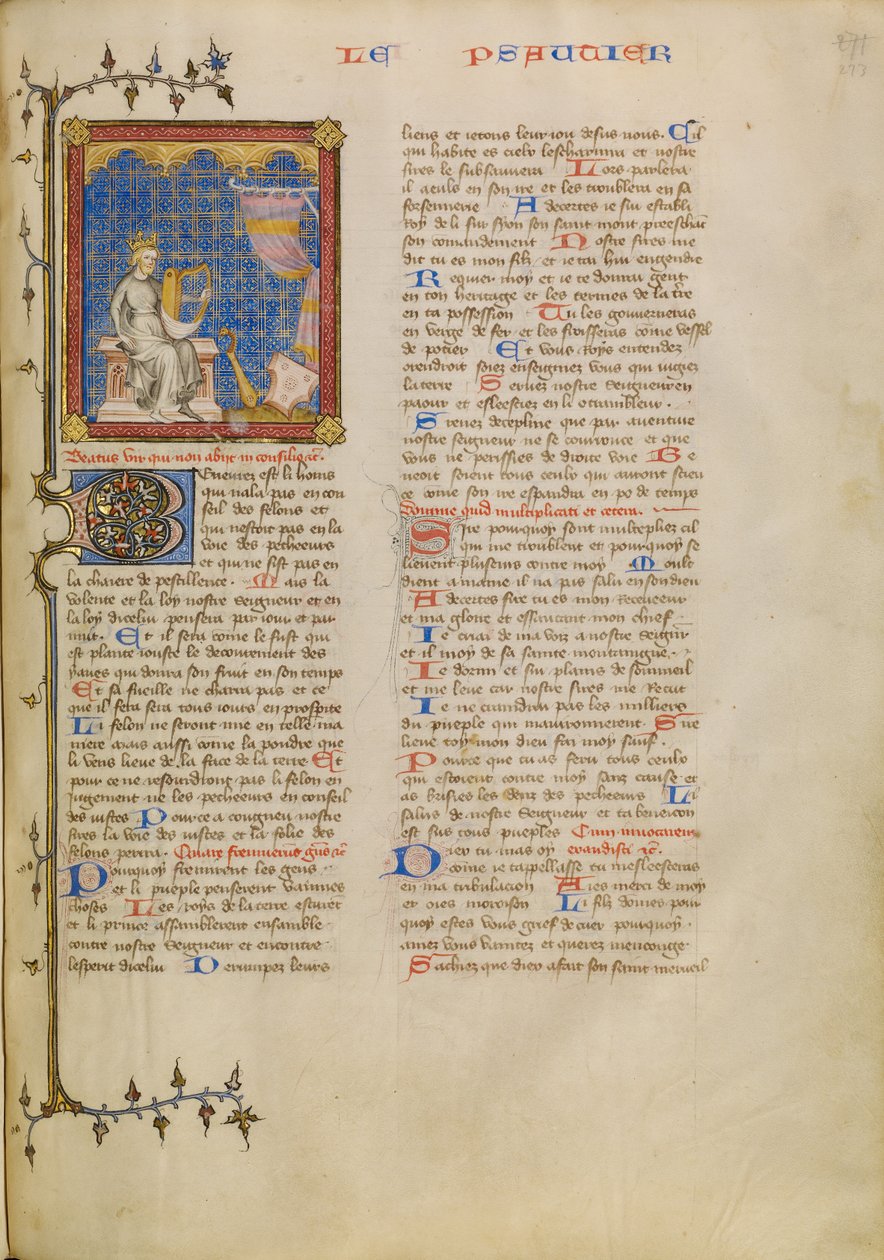 LE PSAUTIER
271
273
Beatus vir qui non abijt in consilio etc.
Beneurez est li homs
qui nala pas en con
seil des felons et
qui nestoit pas en la
voie des pecheeurs
et qui ne sist pas en
la chaiere de pestillence. Mais la
volente et la loy nostre Seigneur et en
la loy dicelui pensera par iour et par
nuit. Et il sera come le fust qui
est plante iouste le decourement des
yaues qui donra son fruit en son temps
Et sa fueille ne charra pas et ce
que il fera sera tous iours en prosperite
Li felon ne seront mie en telle ma
niere mais aussi come la poudre que
li vens lieue de la face de la terre Et
pour ce ne resourdront pas li felon en
Jugement ne les pecheeurs en conseil
des iustes Pour ce a congneu nostre
sires la voie des iustes et la folie des
felons perira. Quare fremuerunt gens etc
Pourquoy fremirent les gens
et li pueple penserent vaines
choses Les roys de la terre esturent
et li prince assamblerent ensamble
contre nostre Seigneur et encontre
lesperit dicelui Derumpez leurs
liens et ietons leur iou desus nous. Cil
qui habite es cielx les eschar​nira et nostre
sires le subsannera Lors parlera
il a euls en son yre et les troublera en sa
forsennerie Adecertes ie sui establi
Roy de li sur syon son saint mont preeschant
son comandement Nostre sires me
dit tu es mon filz et ie tai hui engendre
Requier moy et ie te donrai gent
en ton heritage et les termes de la tre
en ta possession Tu les gouverneras
en verge de fer et les froisseras come vessel
de potier Et vous Roys entendez
orendroit soiez enseigniez vous qui iugiez
la terre Seruez nostre Seigneur en
paour et esleesciez en li et trambleur.
Prenez decepline que par auenture
nostre seigneur ne se courrouce et que
vous ne perissies de droite voie Be
neoit soient tous ceulx qui auront fieu
ce come son yre espandra en po de temps
Domine quid multiplicati et cetera.
Sire pourquoy sont multepliez cil
qui me troublent et pourquoy se
lieuent plusieurs contre moy Moult
dient a mame il na pas salu en son dieu
Adecertes sire tu es mon Receueeur
et ma gloire et essaucant mon chief
Ie criai de ma voiz a nostre Seigneur
et il moy de sa sainte montaingne.
Ie dormi et fui plains de sommeil
et me leue car nostre sires me Recut
Ie ne craindrai pas les milliers
du pueple qui mauironnerent. Sire
lieue toy mon dieu fai moy sauf.
Pource que tu as feru tous ceulx
qui estoient contre moy sanz cause et
as brisies les denz des pecheeurs Li
salus de nostre Seigneur et ta beneicon
est sus tous pueples Cum inuocarem
Diex tu mas oy exaudisti etc.
come ie tappellasse tu mesleesceras
en ma tribulacion Aies merci de moy
et oies moroison Li filz domes pour
quoy estes vous grief de cuer pourquoy
amez vous vanitez et querez mencoinge
Sachiez que diex a fait son saint merueil